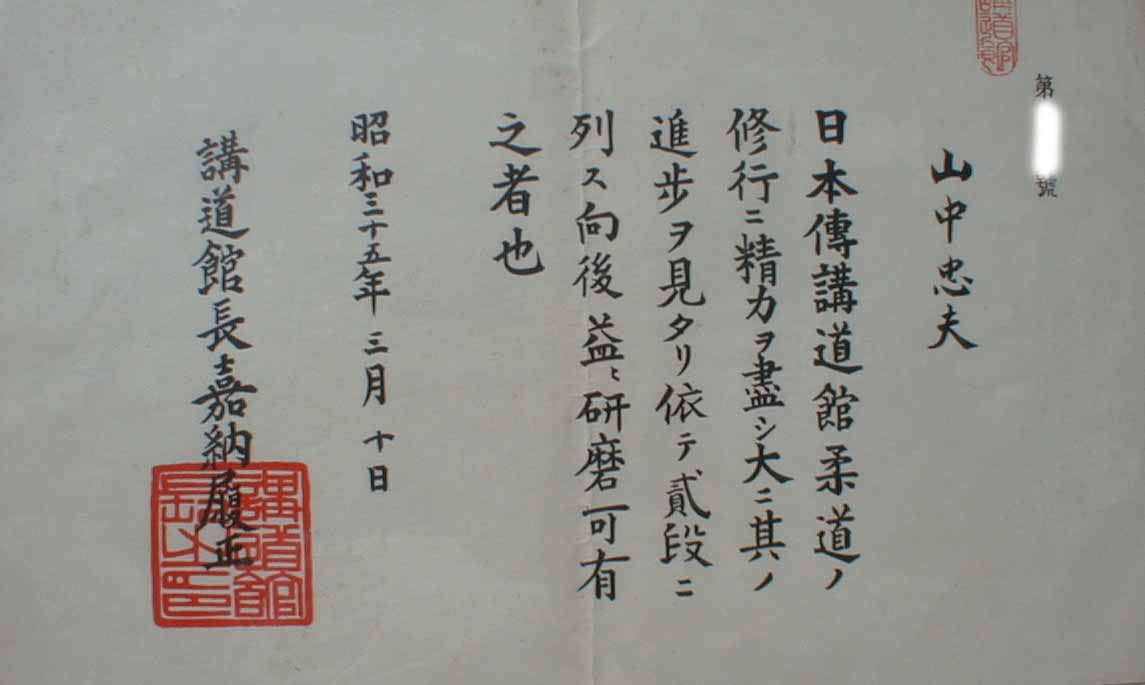 第 號
山中忠夫
日本傳講道館柔道ノ
修行ニ精力ヲ盡シ大ニ其ノ
進歩ヲ見タリ依テ貳段ニ
列ス向後益〻研磨可有
之者也
昭和三十五年三月十日
講道館長嘉納履正
講道館
長之印